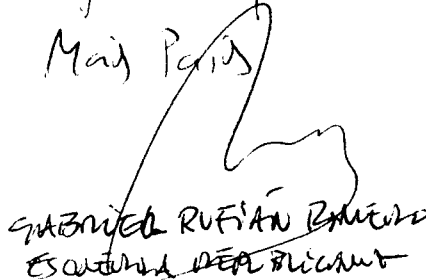 Más País
GABRIEL RUFIÁN ROMERO
ESQUERRA REPUBLICANA